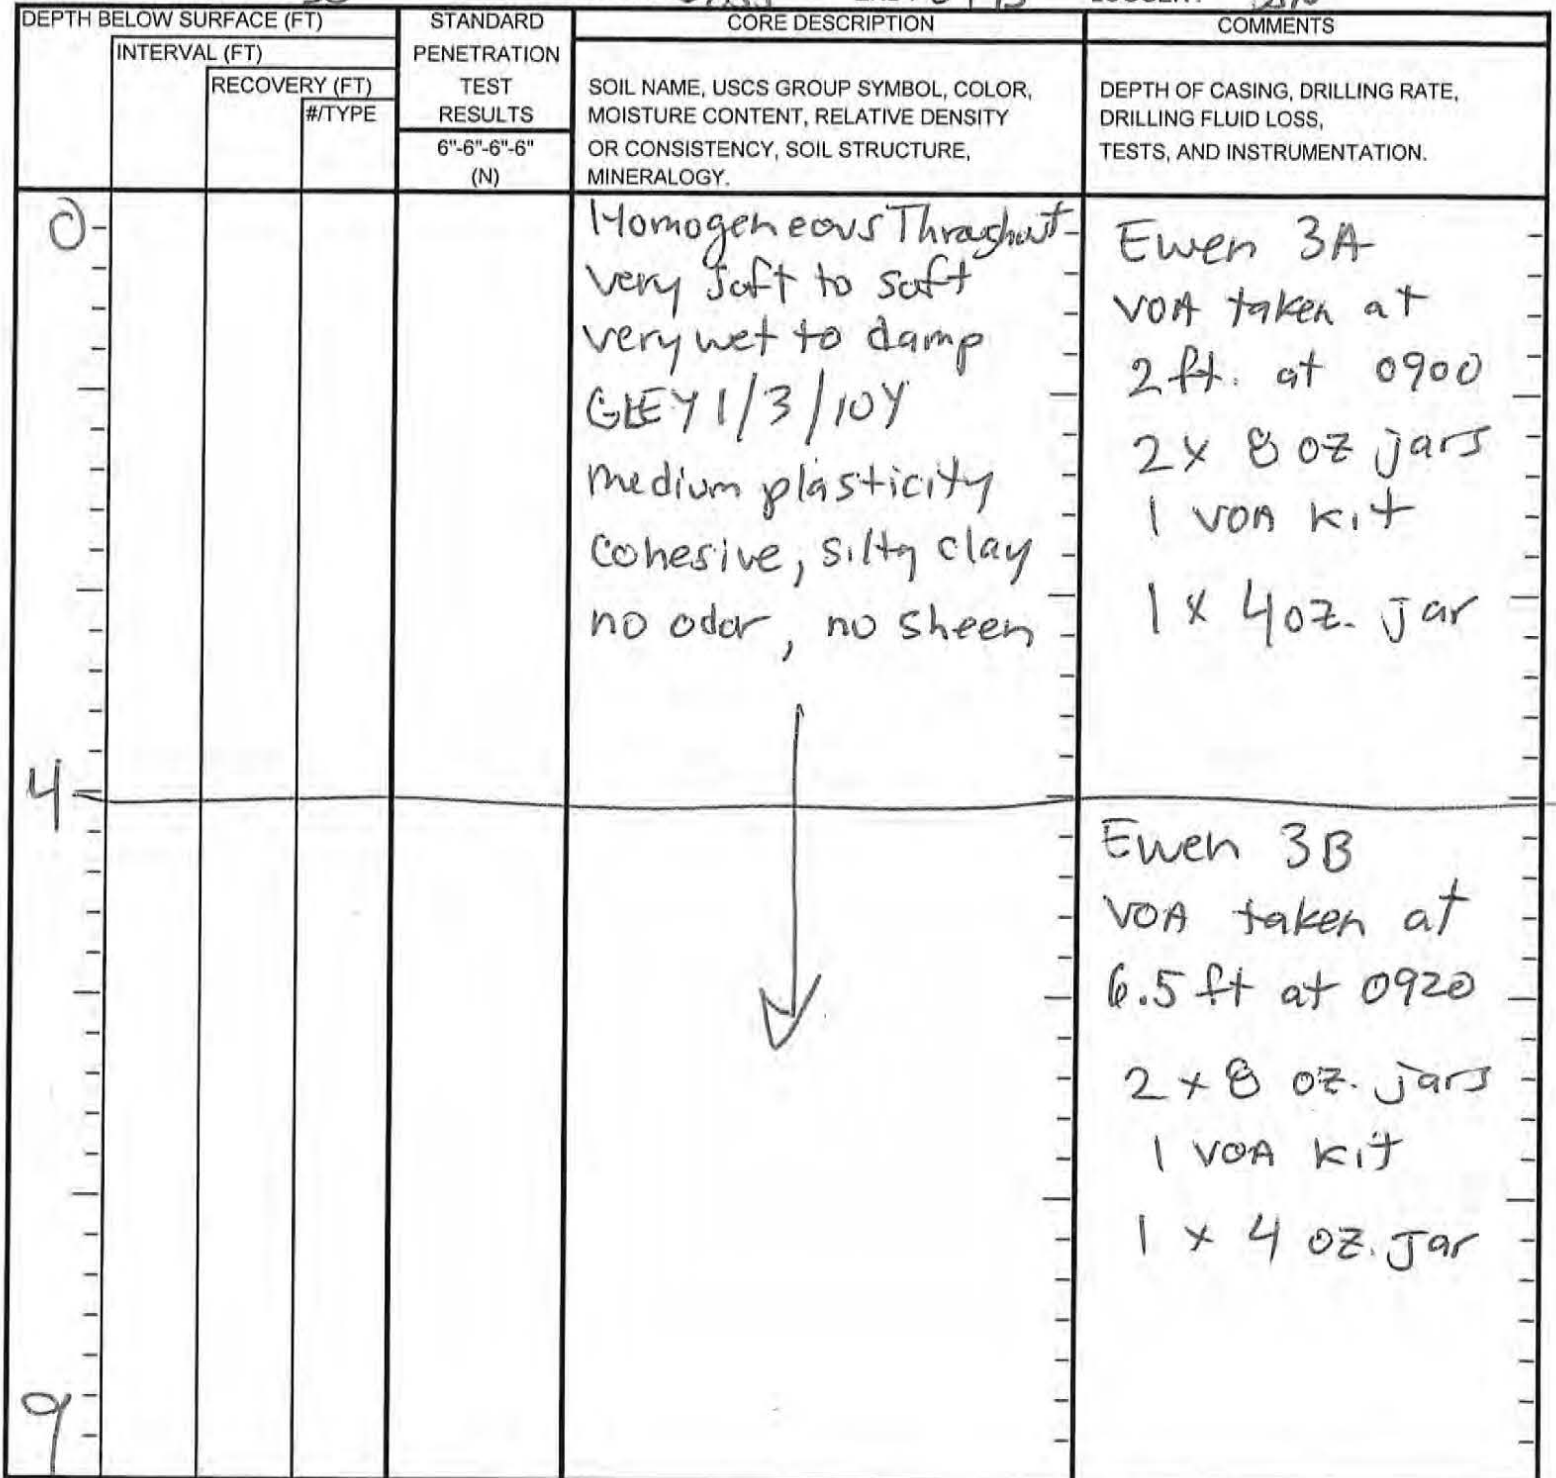 DEPTH BELOW SURFACE (FT)
INTERVAL (FT)
RECOVERY (FT)
#/TYPE
STANDARD
PENETRATION
TEST
RESULTS
6"-6"-6"-6"
(N)
CORE DESCRIPTION
SOIL NAME, USCS GROUP SYMBOL, COLOR,
MOISTURE CONTENT, RELATIVE DENSITY
OR CONSISTENCY, SOIL STRUCTURE,
MINERALOGY.
COMMENTS
DEPTH OF CASING, DRILLING RATE,
DRILLING FLUID LOSS,
TESTS, AND INSTRUMENTATION.
0
Homogeneous Throughout
very soft to soft
very wet to damp
GLEY 1/3/10Y
medium plasticity
cohesive, silty clay
no odor, no sheen
Ewen 3A
VOA taken at
2 ft. at 0900
2 x 8 oz jars
1 VOA kit
1 x 4 oz. jar
4
Ewen 3B
VOA taken at
6.5 ft at 0920
2 x 8 oz. jars
1 VOA kit
1 x 4 oz. Jar
9